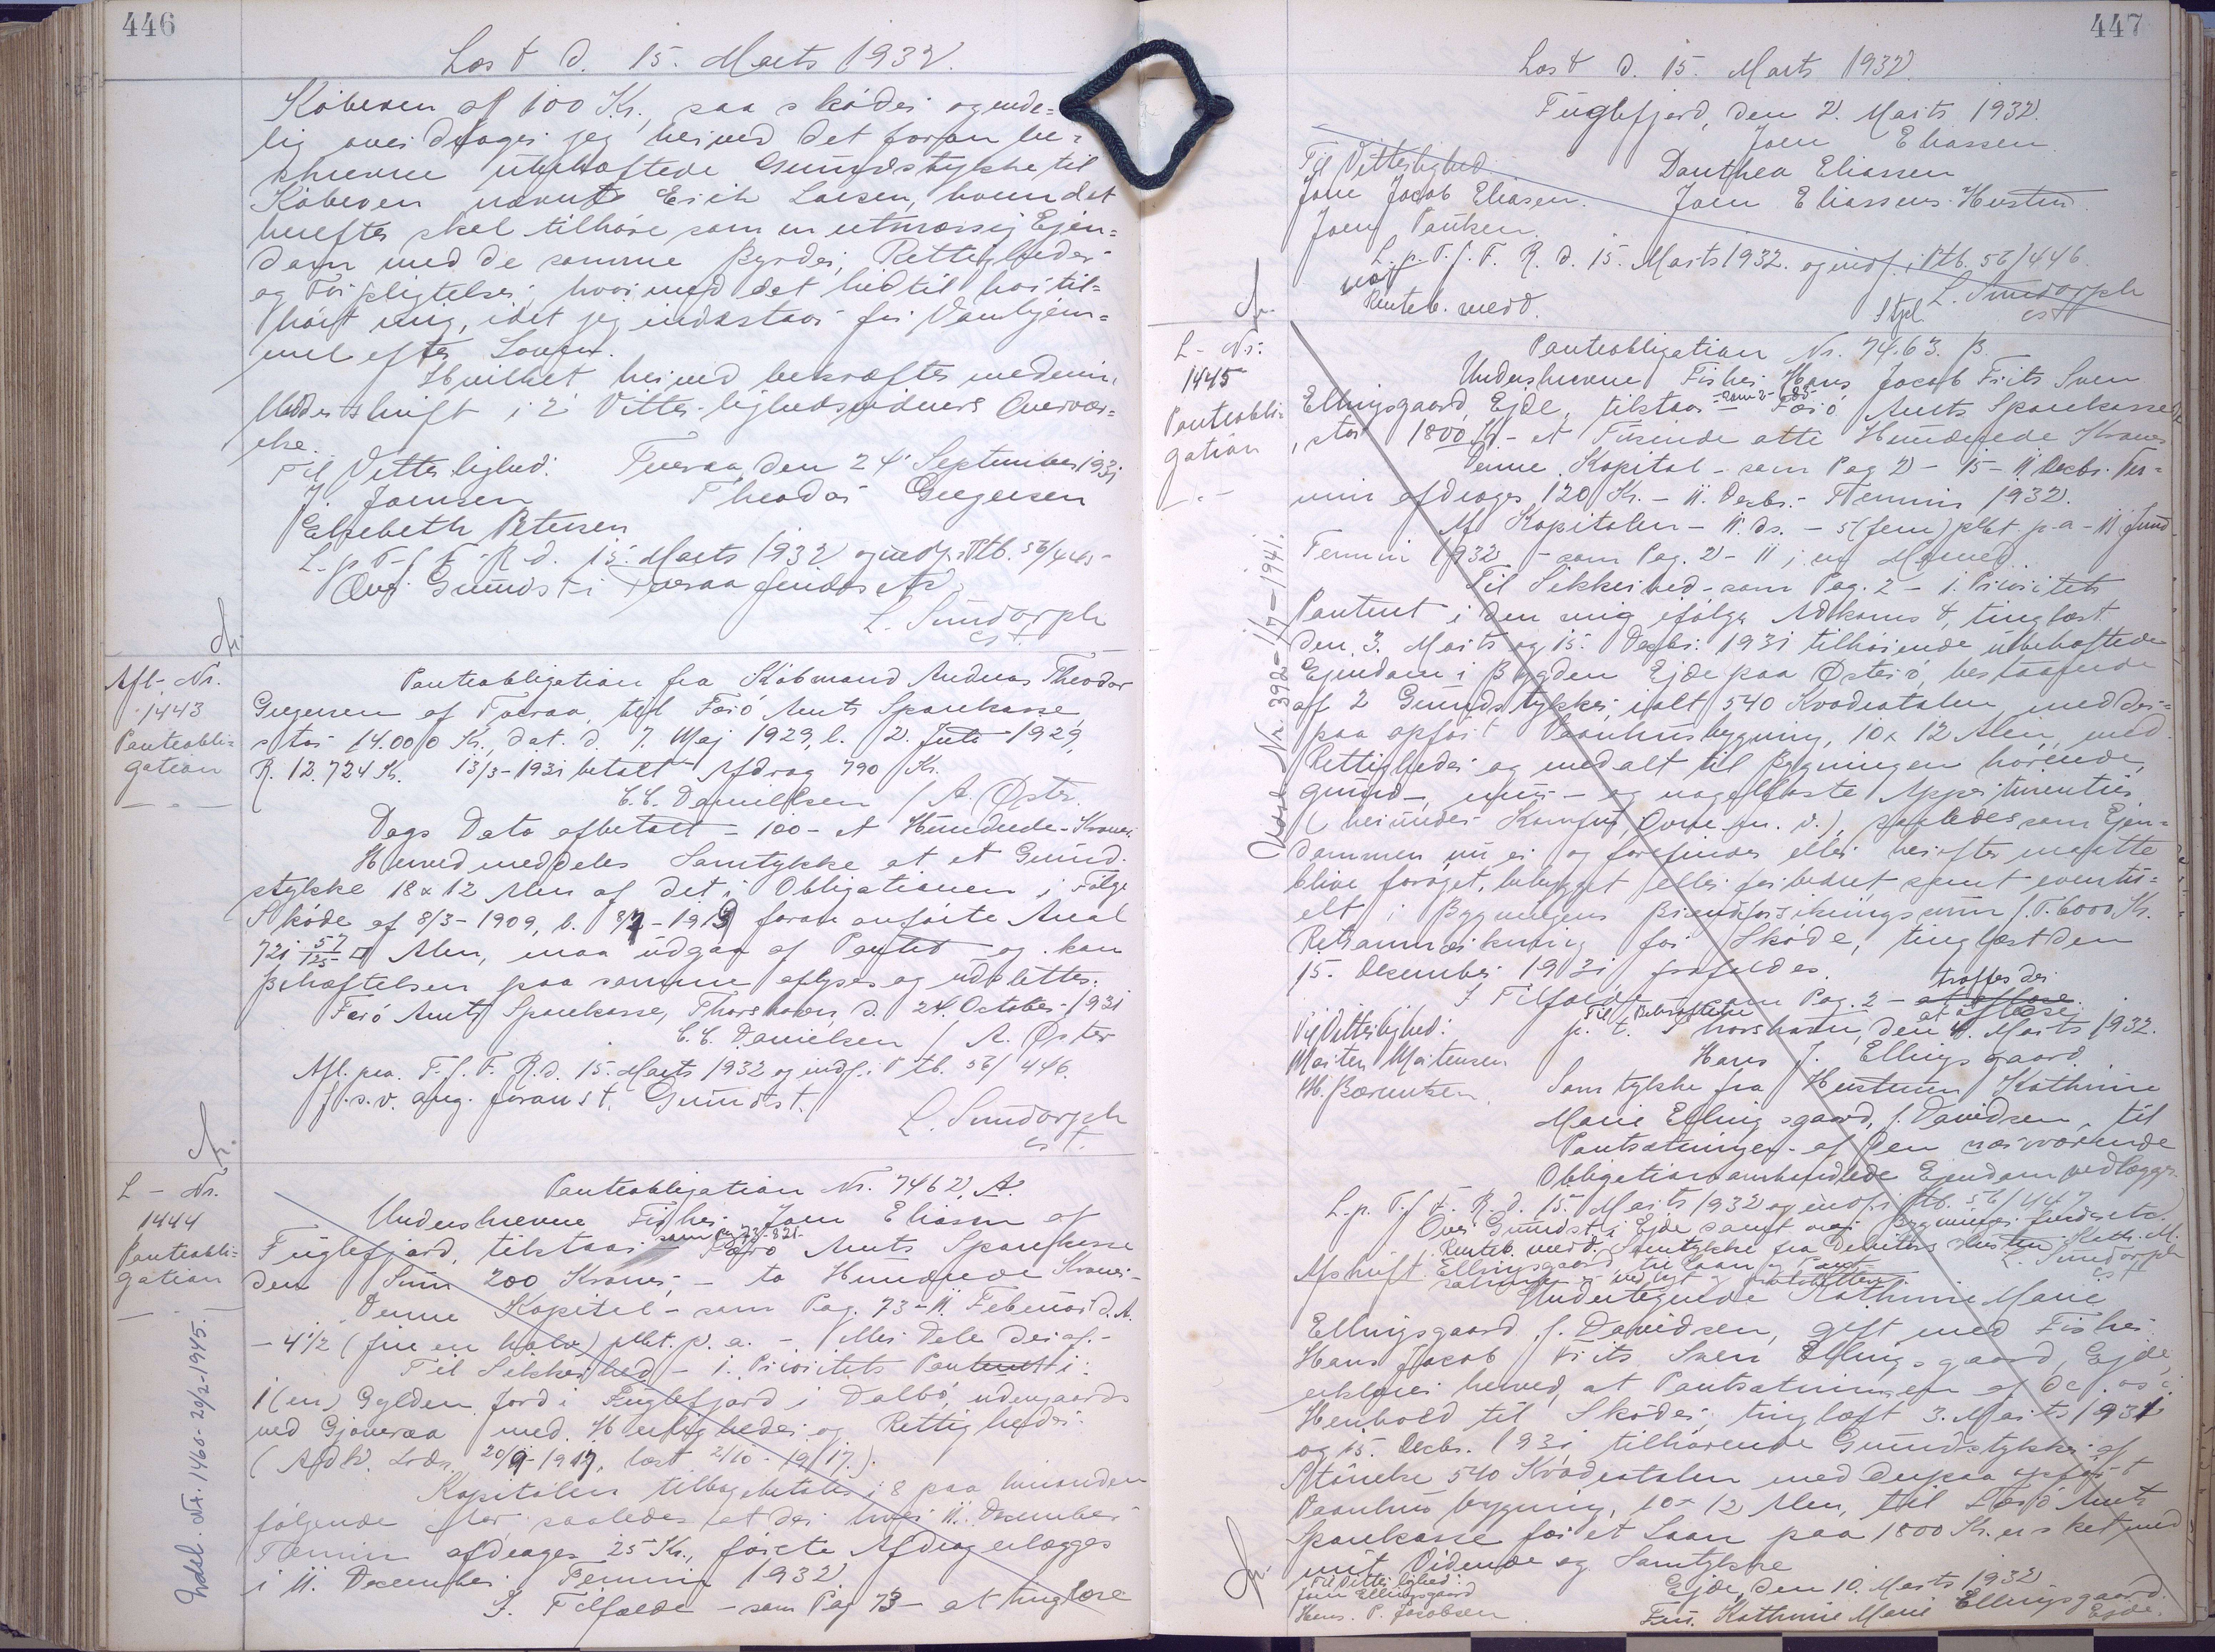 446
Læst d. 15. Marts 1932.
Køberen af 100 Kr., saa skøder og ende=
lig overdrager jeg herved det foran be=
skrevne ubehæftede Grundstykke til
Køberen nævnte Erik Larsen, hvem det
herefter skal tilhøre som en retmæssig Ejen=
dom med de samme Byrder, Rettigheder
og Forpligtelser, hvormed det hidtil har til=
hørt mig, idet jeg indestaar for Vanhjem=
mel efter Loven.
Hvilket herved bekræftes med min
Underskrift i 2 Vitterlighedsvidners Overvær=
else.
Til Vitterlighed: Tveraa, den 24. September 1931
J. Joensen Theodor Gregersen
Elsebeth Petersen
L. p. T. f. F. R. d. 15. Marts 1932 og indf. i Ptb. 56/445-
Ang. Grundst. i Tveraa findes etc.
L. Sundorph
cst.
Afl. Nr.
1443
Panteobli=
gation
Panteobligation fra Købmand Andreas Theodor
Gregersen af Tveraa, til Færø Amts Sparekasse,
stor 14.000 Kr., dat. d. 7. Maj 1929, l. 2. Juli 1929,
R. 12.724 Kr. 13/3-1931 betalt Afdrag 790 Kr.
C. C. Danielsen / A. Øster.
Dags Dato afbetalt - 100 - et Hundrede - Kroner.
Herved meddeles Samtykke at et Grund-
stykke 18 x 12 Alen af det i Obligationen i Følge
Skøde af 8/3-1909, l. foran anførte Areal
721 57/125 □ Alen, maa udgaa af Pantet og kan
Behæftelsen paa samme aflyses og udslettes.
Færø Amts Sparekasse, Thorshavn, d. 24. October 1931
C. C. Danielsen / A. Øster
Afl. paa T. f. F. R. d. 15. Marts 1932 og indf. i Ptb. 56/446.
f. s. v. ang. foranst. Grundst.
L. Sundorph
cst.
L - Nr.
1444
Panteobli=
gation
Udsl. Nr. 1460-20/2-1945.
Panteobligation Nr. 7462, A.
Underskrevne Fisker Joen Eliasen af
Fuglefjord, tilstaar - som Færø Amts Sparekasse
den Sum 200 Kroner, - to Hundrede Kroner -
Denne Kapital - som Pag. 73 - 11. Februar d. A.
- 4 1/2 (fire en halv) pCt. p. a. - eller Dele deraf -
Til Sikkerhed - 1. Prioritets Panteret i:
1 (en) Gylden Jord i Fuglefjord i Dalbø, udengaards
ved Gjoveraa med Herligheder og Rettigheder.
(Adk. 20/9-1917, læst 2/10-1917.)
Kapitalen tilbagebetales i 8 paa hinanden
følgende Aar, saaledes at der hver 11. December
Termin afdrages 25 Kr., første Afdrag erlægges
i 11. December Termin 1932
I Tilfælde - som Pag 73 - at tinglæse
447
Læst d. 15. Marts 1932
Fuglefjord, den 2. Marts 1932.
Joen Eliassen
Til Vitterlighed
Danthea Eliassen
Jone Jacob Eliasen. Joen Eliassens Hustru
Joen Poulsen.
L. p. T. f. F. R. d. 15. Marts 1932. og indf. i Ptb. 56/446.
Renteb. medd.
L. Sundorph
cst
L - Nr.
1445
Panteobli=
gation
Udsl. Nr. 392-1/7-1941.
Panteobligation Nr. 7463. B.
Underskrevne Fisker Hans Jacob Frits Sven
Ellingsgaard, Ejde, tilstaar - Færø Amts Sparekasse
, stor 1800 Kr - et Tusinde otte Hundrede Kroner
Denne Kapital - som Pag 2 - 15 - 11 Decbr. Ter=
min afdrages 120 Kr. - 11. Decbr. Termin 1932.
Af Kapitalen - 11. ds. - 5 (fem) pCt. p. a. - 11 Juni
Termin 1932 - som Pag. 2 - 11 j. ny Maaned
Til Sikkerhed - som Pag. 2 - 1. Prioritets
Panteret i den mig ifølge Adkomst, tinglæst
den 3. Marts og 15. Decbr. 1931 tilhørende ubehæftede
Ejendom i Bygden Ejde paa Østerø, bestaaende
af 2 Grundstykker, ialt 540 Kvadratalen med der=
paa opført Vaanhusbygning, 10 x 12 Alen, med
Rettigheder og med alt til Bygningen hørende,
grund-, mur- og nagelfaste Appertinentier
(herunder Komfur, Ovne m. v.), saaledes som Ejen=
dommen nu er og forefindes eller herefter maatte
blive forøget, bebygget eller forbedret samt eventu=
elt i Bygningens Brandforsikringssum f. T. 6000 Kr.
Retsanmærkning for Skøde, tinglæst den
15. December 1931 frafaldes.
I Tilfælde - som Pag. 2 - at aflæse. træffes der
at aflæse
Til Bekræftelse
Til Vitterlighed: p. t. Thorshavn, den 4. Marts 1932.
Morten Mortensen Hans J. Ellingsgaard
H. Bærentsen. Samtykke fra Hustruen Kathrine
Marie Ellingsgaard, f. Davidsen, til
Pantsætningen af den nærværende
Obligation omhandlede Ejendom vedlægges.
L. p. T. f. F. R. d. 15. Marts 1932 og indf. i Ptb. 56/447
Over Grundst. i Ejde samt over Bygninger findes etc.
Renteb. medd. Samtykke fra Debitors Hustru Kath. M.
Ellingsgaard, til Laan og Pant-
sætning er vedlagt og protokolleret. L. Sundorph
cst
Afskrift
Undertegnede Kathrine Marie
Ellingsgaard f. Davidsen, gift med Fisker
Hans Jacob Frits Sven Ellingsgaard, Ejde,
erklærer herved, at Pantsætningen af de os i
Henhold til Skøder, tinglæst 3. Marts 1931
og 15. Decbr. 1931 tilhørende Grundstykker af
Størrelse 540 Kvadratalen med derpaa opført
Vaanhusbygning, 10 x 12 Alen, til Færø Amts
Sparekasse for et Laan paa 1800 Kr. er sket med
mit Vidende og Samtykke
Til Vitterlighed: Ejde, den 10. Marts 1932
Joen Ellingsgaard
Hans. P. Jacobsen. Fru. Kathrine Marie Ellingsgaard.
Ejde.